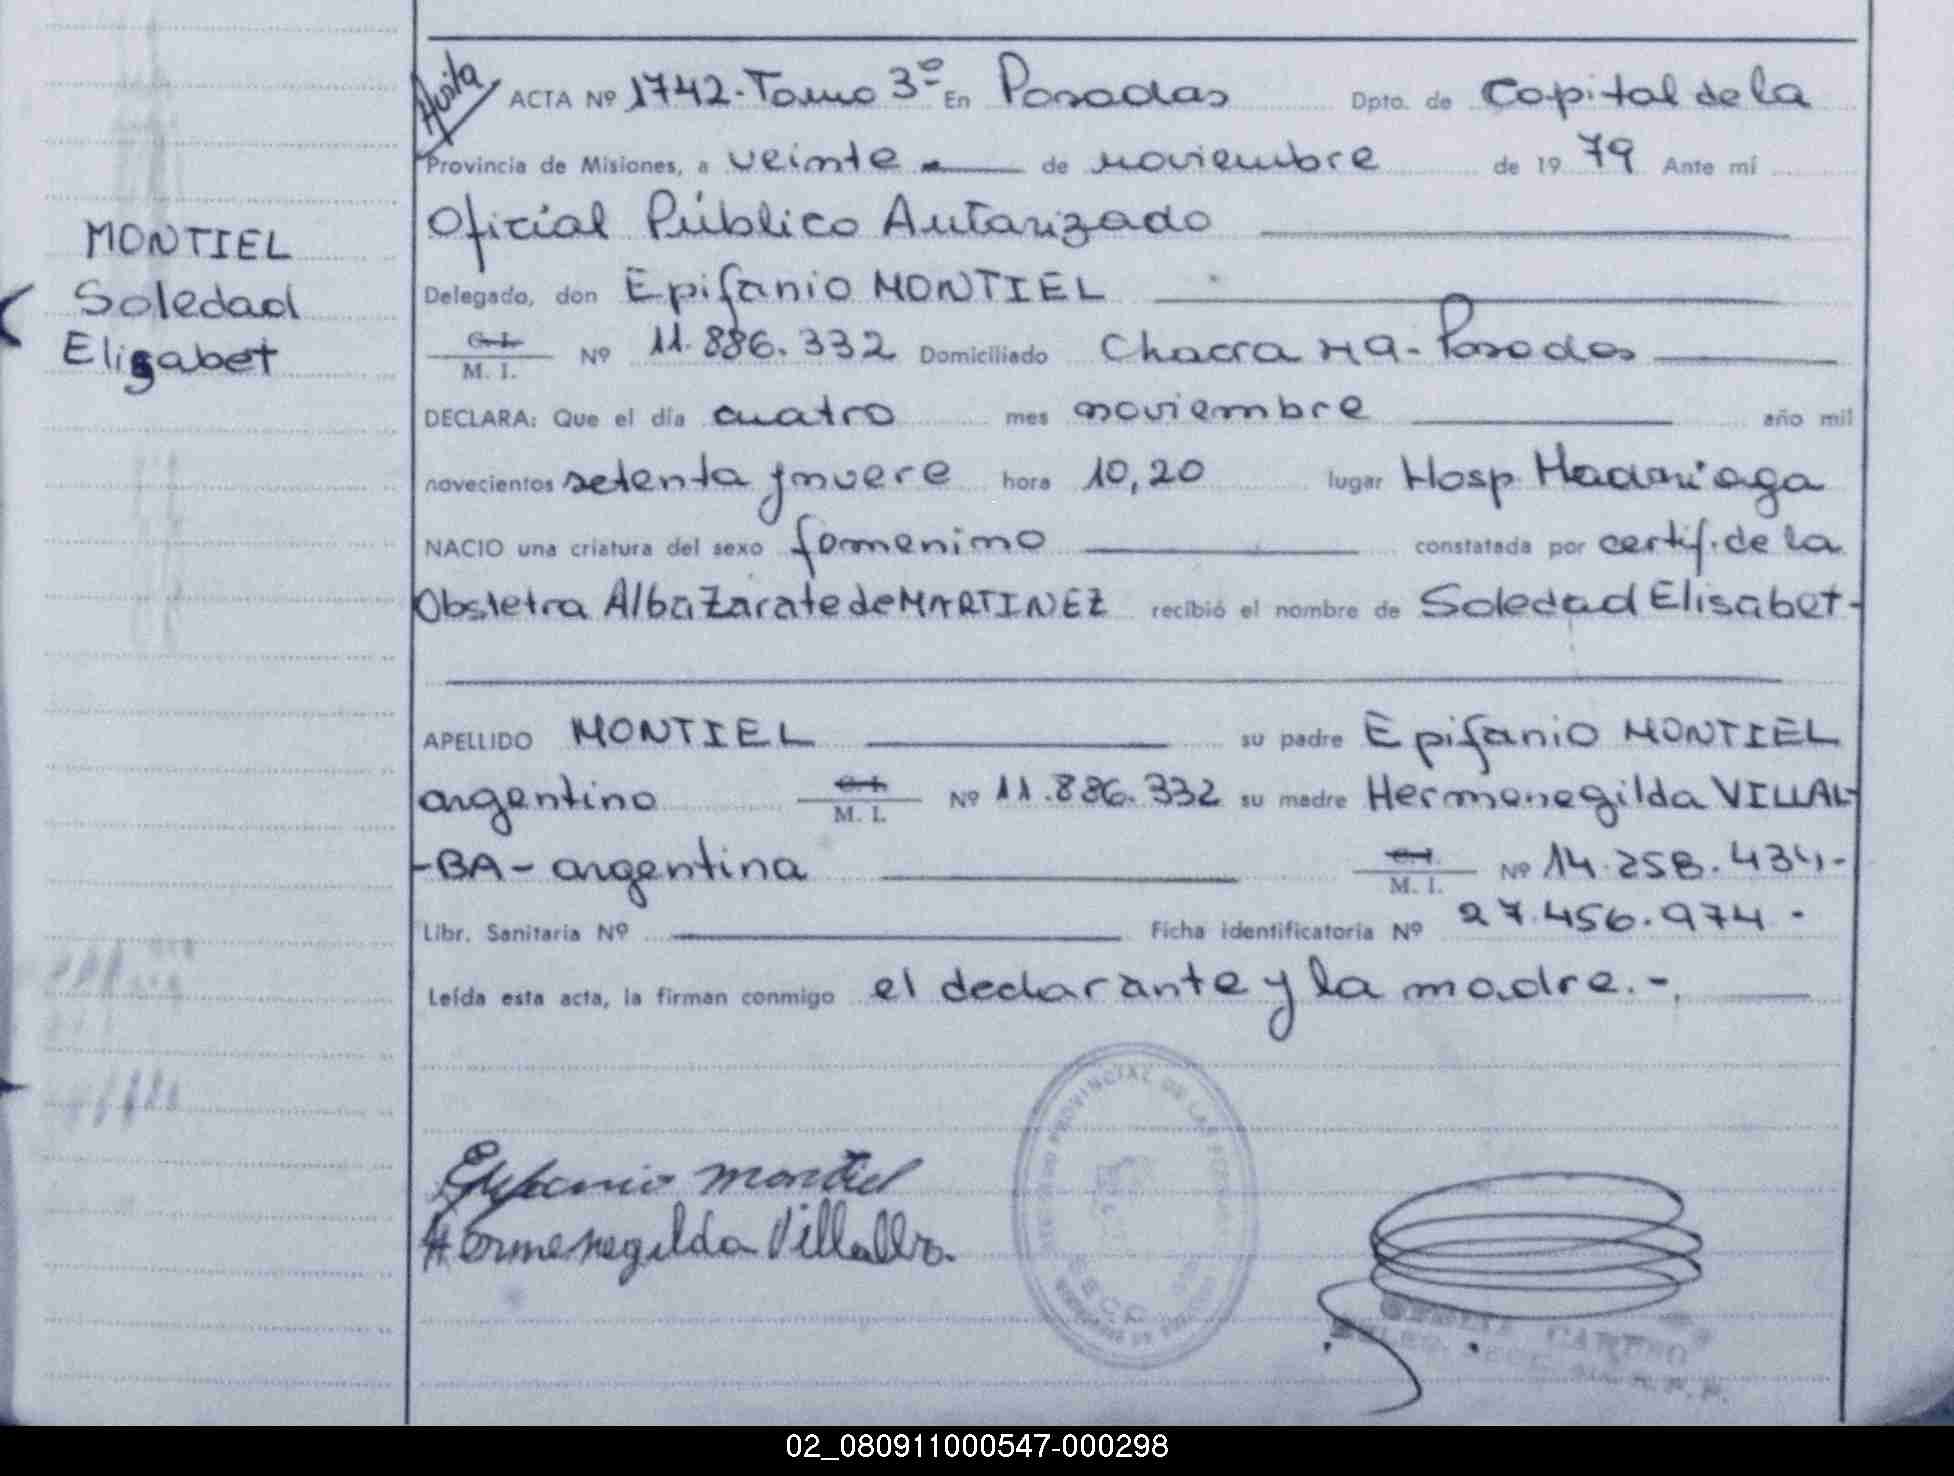 Avita
ACTA Nº 1742-Tomo 3º En Posadas Dpto. de Capital de la
Provincia de Misiones, a veinte de noviembre de 1979 Ante mí
Oficial Público Autorizado
Delegado, don Epifanio MONTIEL
C.I. M. I. Nº 11.886.332 Domiciliado Chacra Posadas
DECLARA: Que el día cuatro mes noviembre año mil
novecientos setenta y nueve hora 10,20 lugar Hosp Madariaga
NACIO una criatura del sexo femenino constatada por certif. de la
Obstetra Alba Zarate de MARTINEZ recibió el nombre de Soledad Elisabet-
APELLIDO MONTIEL su padre Epifanio MONTIEL
argentino C.I. M. I. Nº 11.886.332 su madre Hermenegilda VILLAL-
-BA- argentina C.I. M. I. Nº 14.258.434.-
Libr. Sanitaria Nº Ficha identificatoria Nº 27.456.974.-
Leída esta acta, la firman conmigo el declarante y la madre.-
MONTIEL
Soledad
Elisabet
Epifanio Montiel
Hermenegilda Villalba.
PROVINCIAL DE LAS PERSONAS
02_080911000547-000298